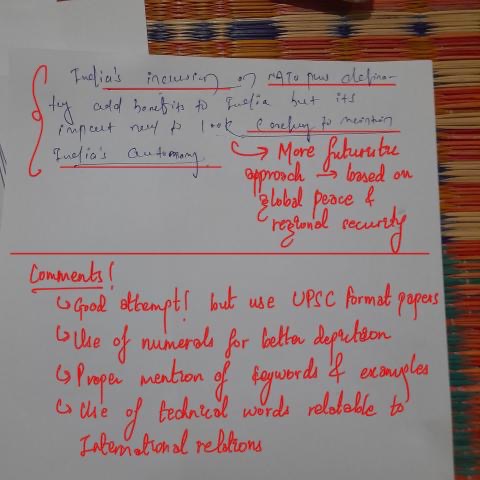 India's inclusion in NATO plus defina-
tly add benefits to India but its
impact need to look carefuly to maintain
India's autonomy.
→ More futuristic
approach → based on
global peace &
regional security
Comments!
↳ Good attempt! but use UPSC format papers
↳ Use of numerals for better depiction
↳ Proper mention of keywords & examples
↳ Use of technical words relatable to
International relations